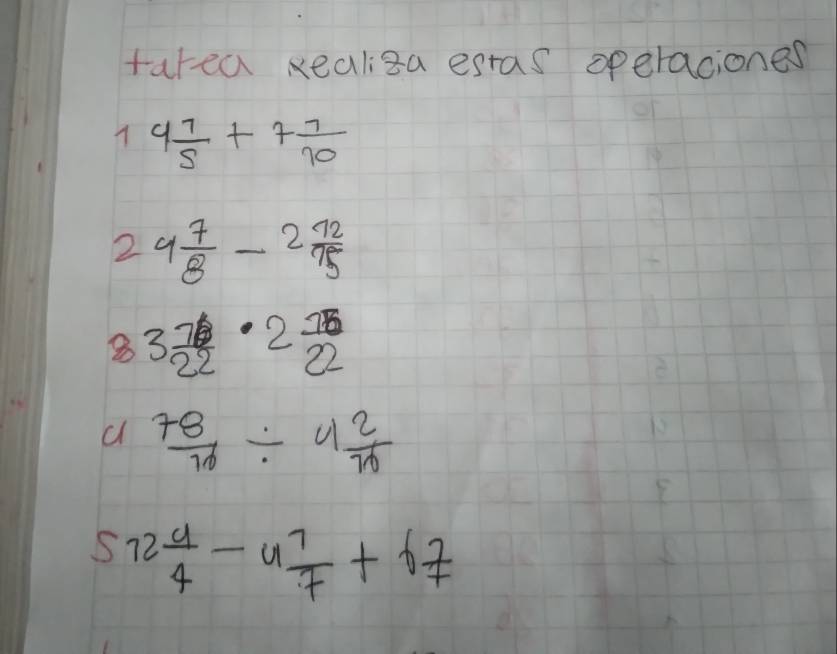 tarea realiza estas operaciones
1 4 1/5 + 7 1/10
2 4 7/8 - 2 12/15
3 3 16/22 · 2 15/22
4 18/10 ÷ 4 2/10
5 12 4/4 - 4 1/7 + 6 7/7